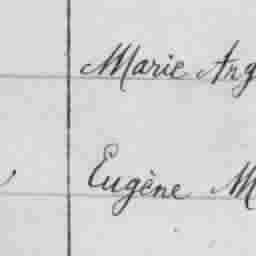 Marie Arg
Eugène M